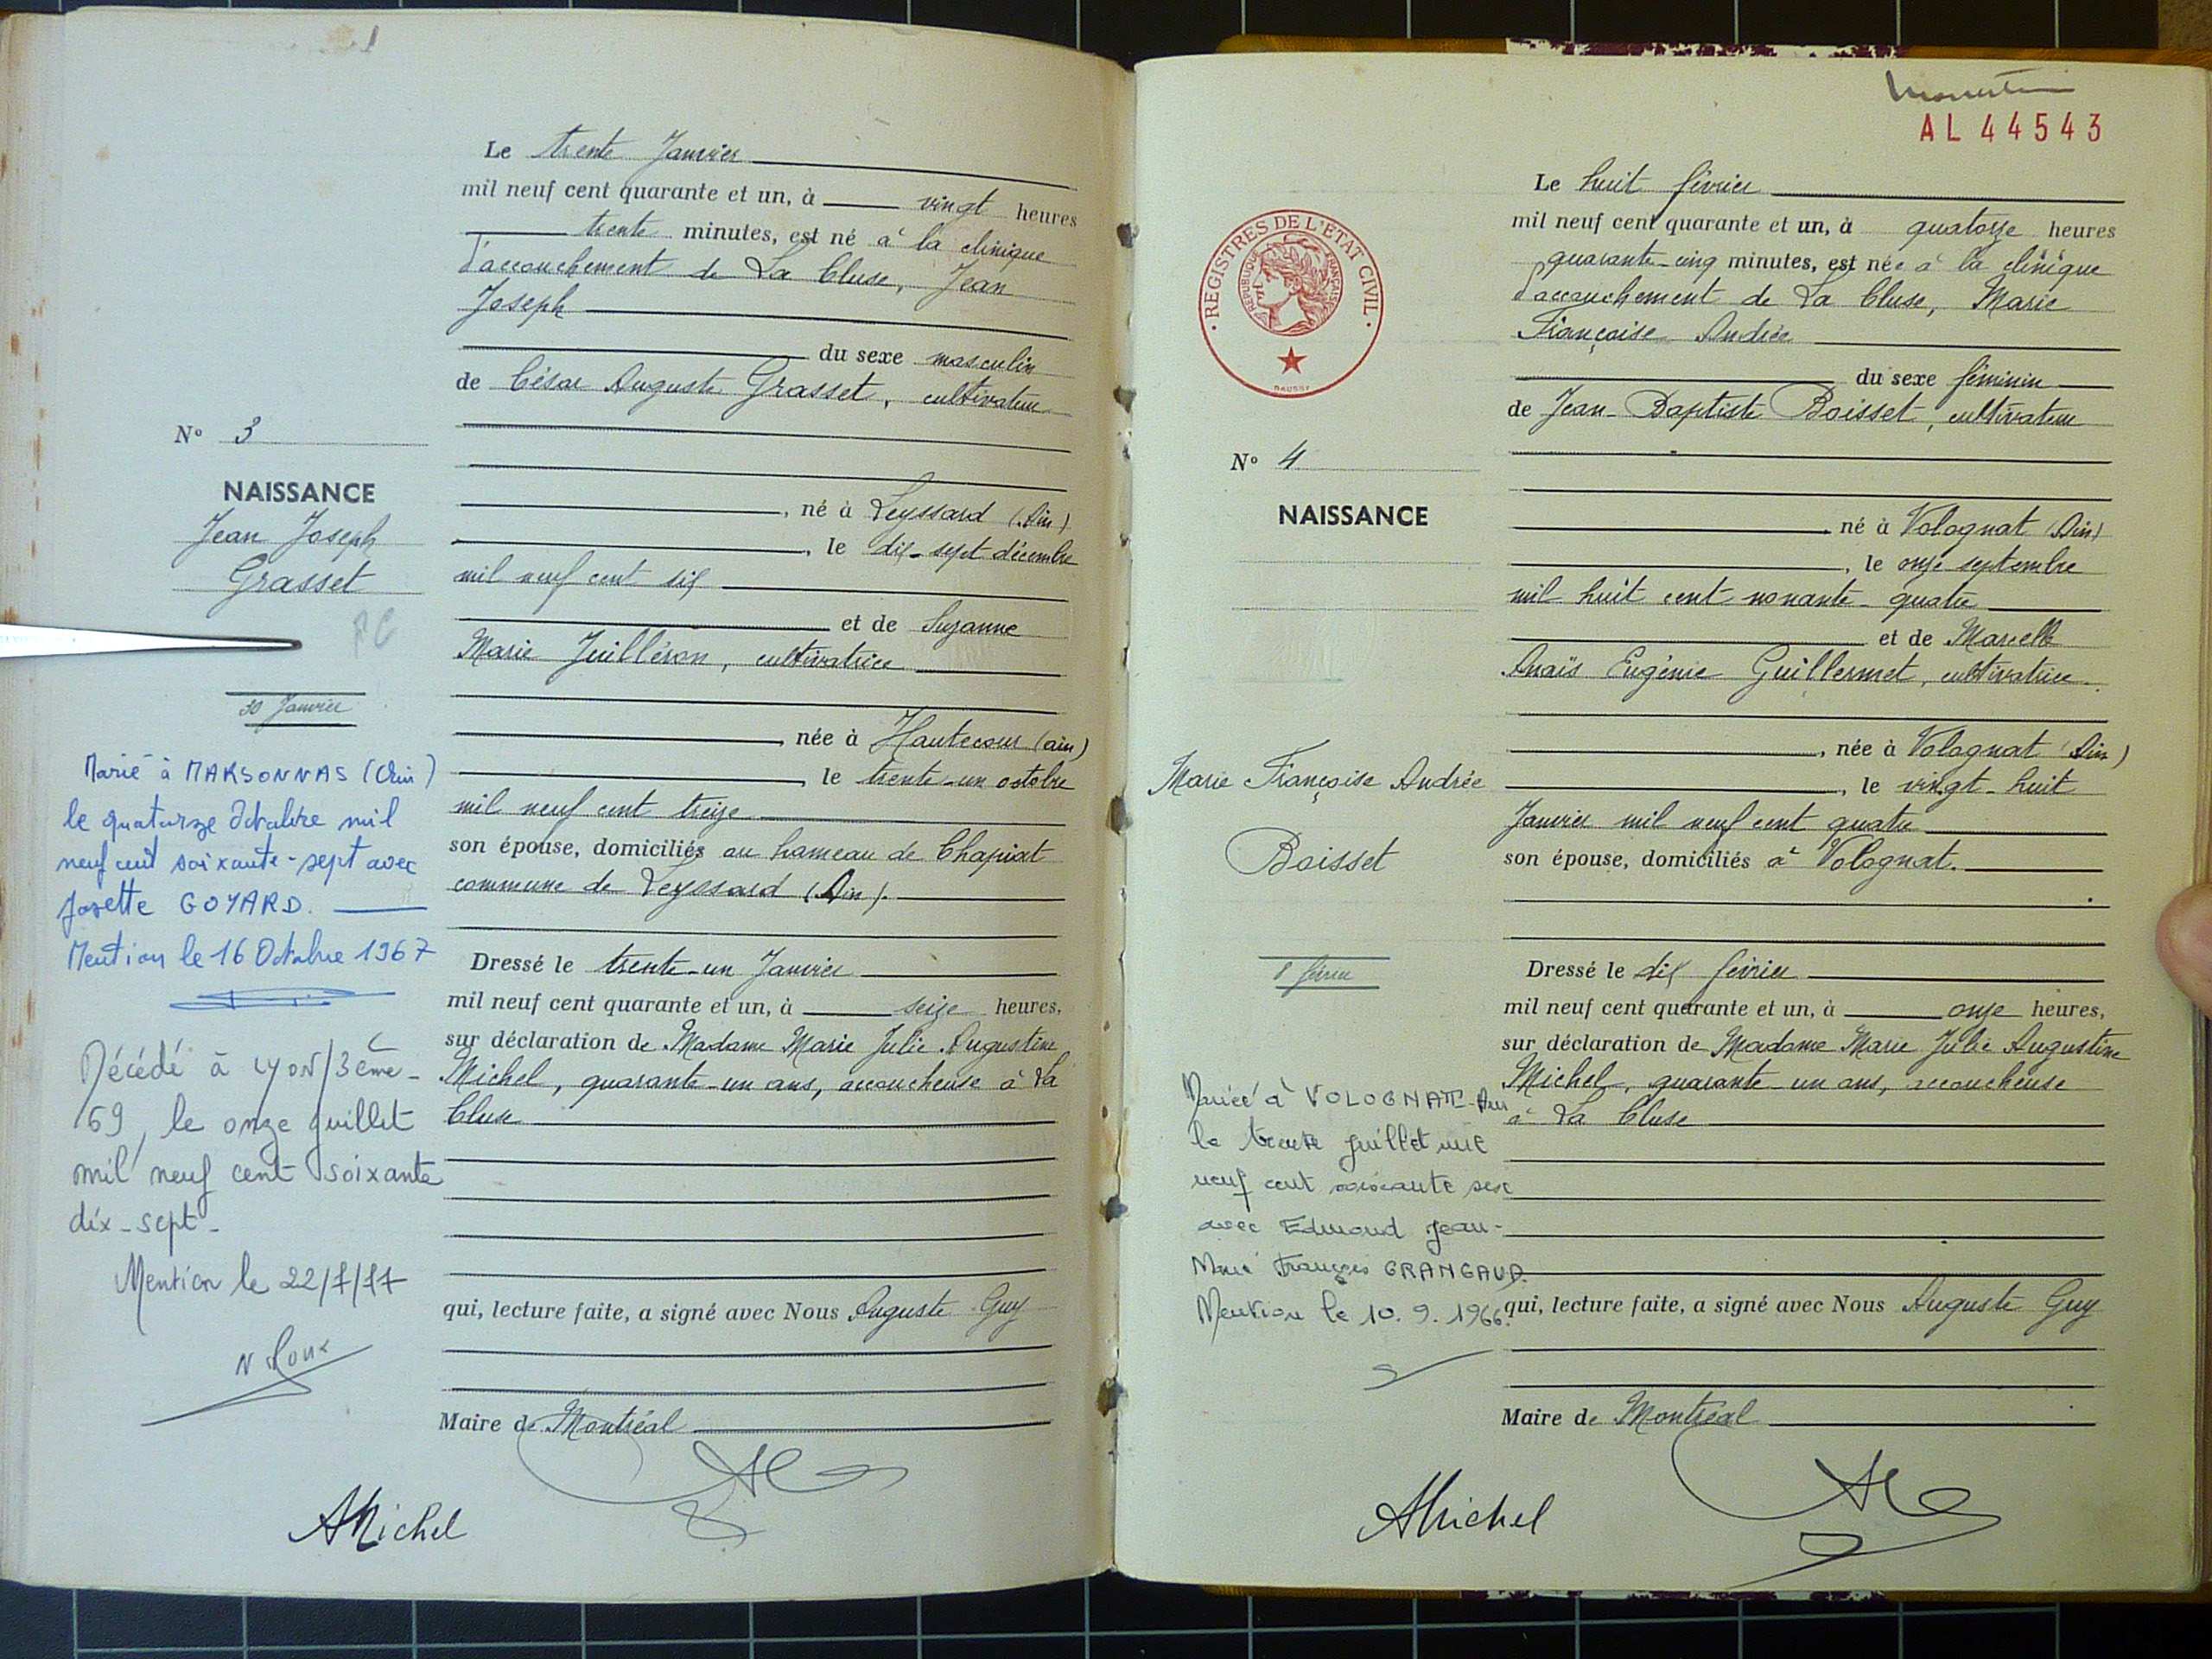 Le trente Janvier
mil neuf cent quarante et un, à vingt heures
trente minutes, est né à la clinique
d'accouchement de La Cluse, Jean
Joseph
du sexe masculin
de César Auguste Grasset, cultivateur
N° 3
NAISSANCE
Jean Joseph
Grasset
30 Janvier
né à Leyssard (Ain)
, le dix-sept décembre
mil neuf cent six
et de Suzanne
Marie Juilléron, cultivatrice
, née à Hautecour (ain)
, le trente-un octobre
mil neuf cent treize
son épouse, domiciliés au hameau de Chapiat
commune de Leyssard (Ain).
Dressé le trente-un Janvier
mil neuf cent quarante et un, à seize heures,
sur déclaration de Madame Marie Julie Augustine
Michel, quarante-un ans, accoucheuse à La
Cluse
qui, lecture faite, a signé avec Nous Auguste Guy
Maire de Montréal
AMichel
Marié à MARSONNAS (Ain)
le quatorze Octobre mil
neuf cent soixante-sept avec
Josette GOYARD.
Mention le 16 Octobre 1967
Décédé à LYON/3ème-
69, le onze juillet
mil neuf cent soixante
dix-sept-
Mention le 22/7/77
N Roux
AL 44543
REGISTRES DE L'ETAT CIVIL
REPUBLIQUE FRANÇAISE
Le huit février
mil neuf cent quarante et un, à quatorze heures
quarante-cinq minutes, est née à la clinique
d'accouchement de La Cluse, Marie
Françoise Andrée
du sexe féminin
de Jean-Baptiste Boisset, cultivateur
N° 4
NAISSANCE
Marie Françoise Andrée
Boisset
8 février
né à Volognat (Ain)
, le onze septembre
mil huit cent nonante-quatre
et de Marcelle
Anaïs Eugénie Guillermet, cultivatrice.
, née à Volognat (Ain)
, le vingt-huit
Janvier mil neuf cent quatre
son épouse, domiciliés à Volognat.
Dressé le dix février
mil neuf cent quarante et un, à onze heures,
sur déclaration de Madame Marie Julie Augustine
Michel, quarante-un ans, accoucheuse
à La Cluse
qui, lecture faite, a signé avec Nous Auguste Guy
Maire de Montréal
AMichel
Mariée à VOLOGNAT-Ain
le trente juillet mil
neuf cent soixante six
avec Edmond Jean-
Marie François GRANGAUD.
Mention le 10.9.1966.